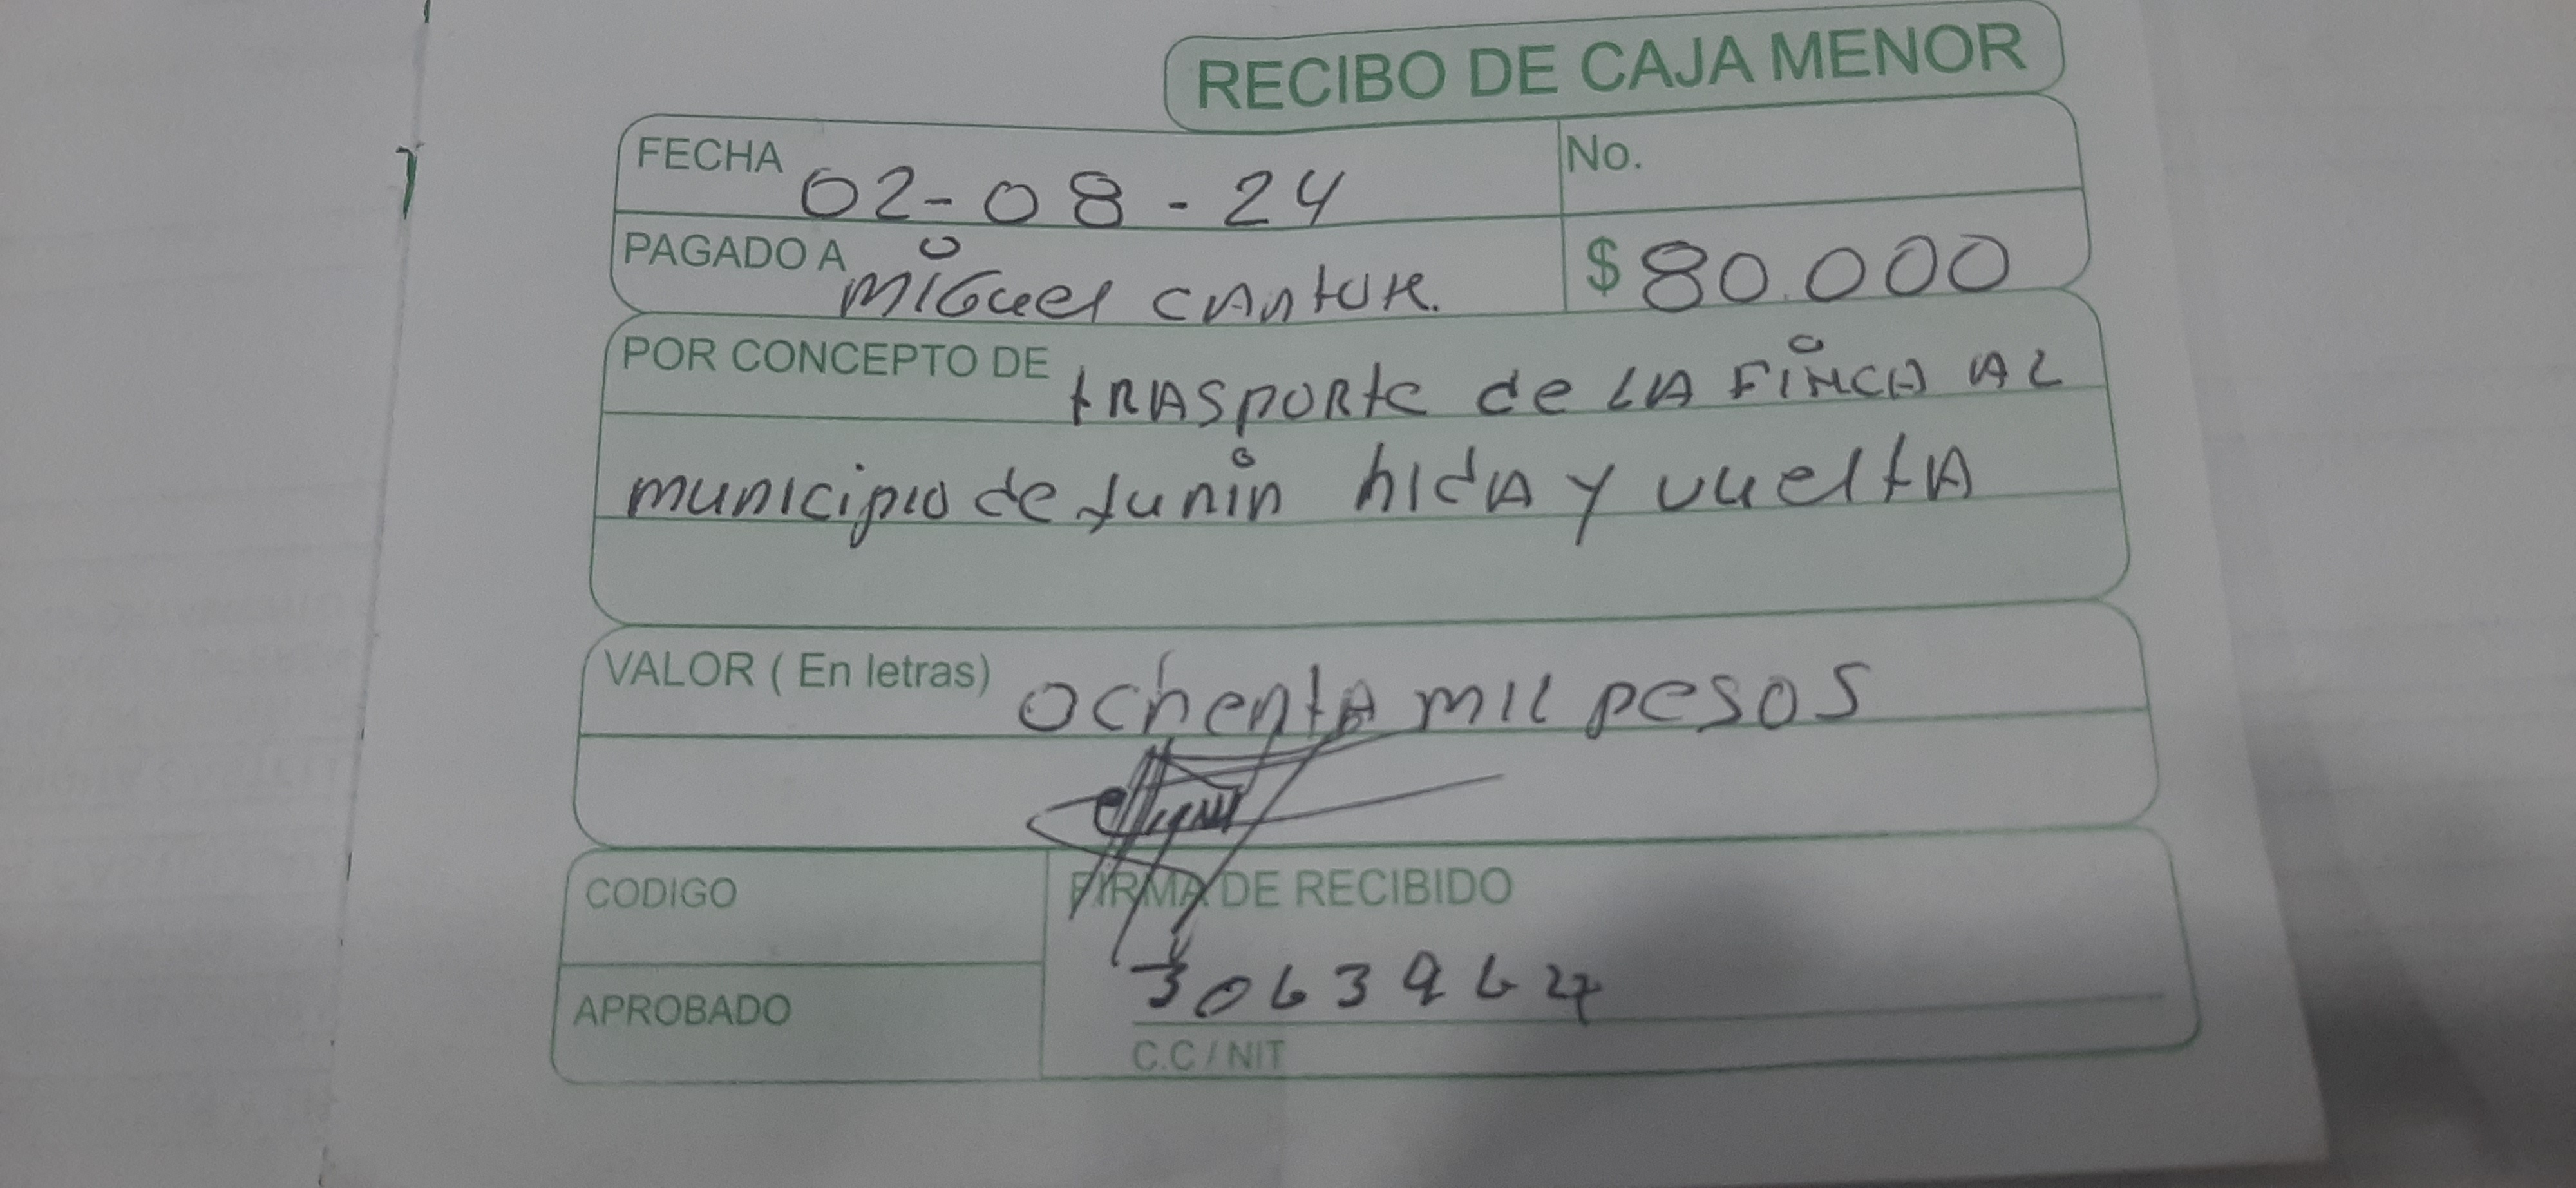 RECIBO DE CAJA MENOR
FECHA 02-08-24 No.
PAGADO A Miguel CAntoR. $80.000
POR CONCEPTO DE tRASPORte de LA FiNCA AL
municipio de Junin hidA y vueltA
VALOR ( En letras) OchentA mil pesos
CODIGO FIRMA DE RECIBIDO
APROBADO
C.C / NIT